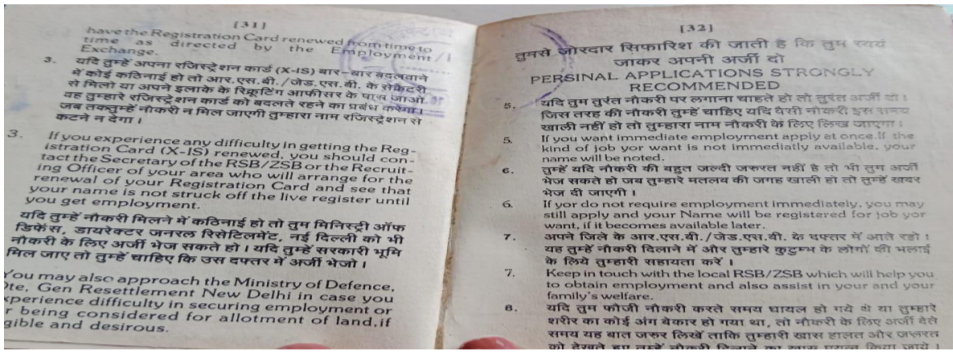 [31]
have the Registration Card renewed from time to
time as directed by the Employment
Exchange.
3. यदि तुम्हें अपना रजिस्ट्रेशन कार्ड (X-IS) बार-बार बदलवाने
में कोई कठिनाई हो तो आर.एस.बी./जेड.एस.बी. के सेक्रेटरी
से मिलो या अपने इलाके के रिक्रूटिंग आफीसर के पास जाओ
वह तुम्हारे रजिस्ट्रेशन कार्ड को बदलते रहने का प्रबंध करेगा।
जब तक तुम्हें नौकरी न मिल जाएगी तुम्हारा नाम रजिस्ट्रेशन से
कटने न देगा।
3. If you experience any difficulty in getting the Reg-
istration Card (X-IS) renewed, you should con-
tact the Secretary of the RSB/ZSB or the Recruit-
ing Officer of your area who will arrange for the
renewal of your Registration Card and see that
your name is not struck off the live register until
you get employment.
यदि तुम्हें नौकरी मिलने में कठिनाई हो तो तुम मिनिस्ट्री ऑफ
डिफेंस, डायरेक्टर जनरल रिसेटिलमेंट, नई दिल्ली को भी
नौकरी के लिए अर्जी भेज सकते हो। यदि तुम्हें सरकारी भूमि
मिल जाए तो तुम्हें चाहिए कि उस दफ्तर में अर्जी भेजो।
You may also approach the Ministry of Defence,
Dte, Gen Resettlement New Delhi in case you
experience difficulty in securing employment or
r being considered for allotment of land, if
gible and desirous.
[32]
तुमसे ज़ोरदार सिफारिश की जाती है कि तुम स्वयं
जाकर अपनी अर्जी दो
PERSINAL APPLICATIONS STRONGLY
RECOMMENDED
5. यदि तुम तुरंत नौकरी पर लगाना चाहते हो तो तुरंत अर्जी दो।
जिस तरह की नौकरी तुम्हें चाहिए यदि वैसी नौकरी इस समय
खाली नहीं हो तो तुम्हारा नाम नौकरी के लिए लिख जाएगा।
5. If you want immediate employment apply at once. If the
kind of job yor want is not immediatly available, your
name will be noted.
6. तुम्हें यदि नौकरी की बहुत जल्दी जरुरत नहीं है तो भी तुम अर्जी
भेज सकते हो जब तुम्हारे मतलब की जगह खाली हो तो तुम्हें खबर
भेज दी जाएगी।
6. If yor do not require employment immediately, you may
still apply and your Name will be registered for job yor
want, if it becomes available later.
7. अपने जिले के आर.एस.बी./जेड.एस.बी. के दफ्तर में आते रहो।
यह तुम्हें नौकरी दिलाने में और तुम्हारे कुटुम्ब के लोगों की भलाई
के लिये तुम्हारी सहायता करें।
7. Keep in touch with the local RSB/ZSB which will help you
to obtain employment and also assist in your and your
family's welfare.
8. यदि तुम फौजी नौकरी करते समय घायल हो गये थे या तुम्हारे
शरीर का कोई अंग बेकार हो गया था, तो नौकरी के लिए अर्जी देते
समय यह बात जरुर लिखें ताकि तुम्हारी खास हालत और जरूरत
को देखते हुए तुम्हें नौकरी दिलाने का खास प्रयत्न किया जाये।